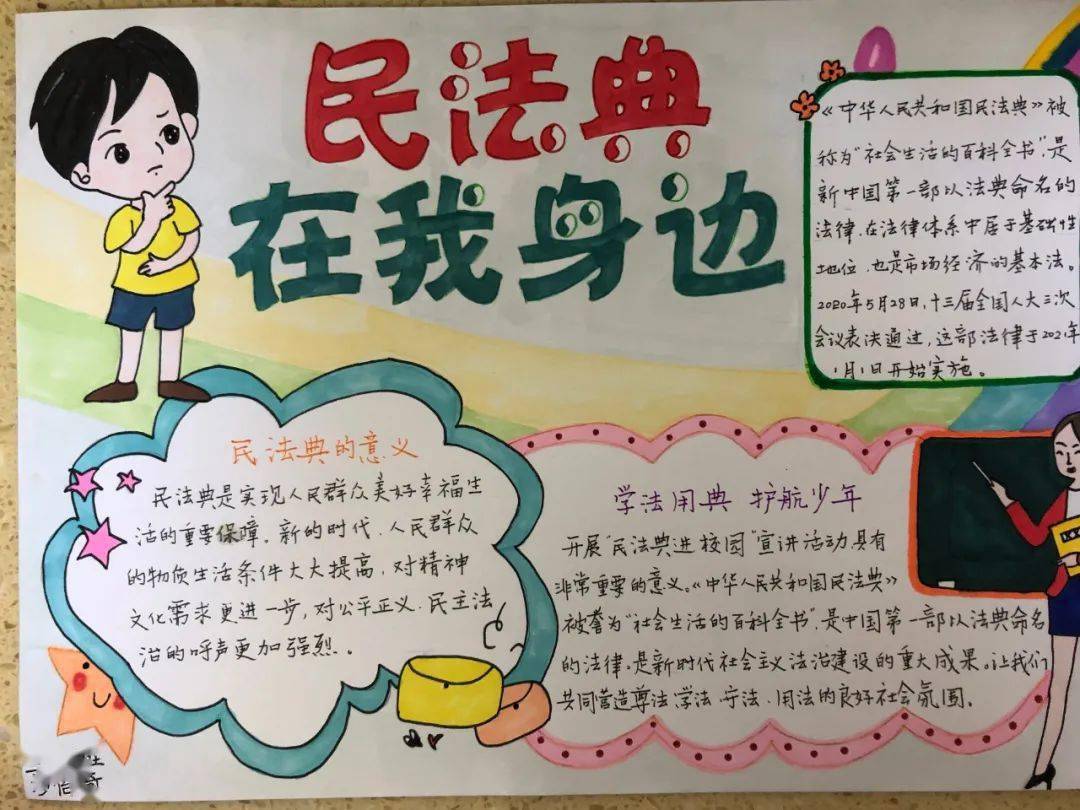 民法典
在我身边
《中华人民共和国民法典》被
称为"社会生活的百科全书",是
新中国第一部以法典命名的
法律,在法律体系中居于基础性
地位,也是市场经济的基本法。
2020年5月28日,十三届全国人大三次
会议表决通过,这部法律于2021年
1月1日开始实施。
民法典的意义
民法典是实现人民群众美好幸福生
活的重要保障。新的时代,人民群众
的物质生活条件大大提高,对精神
文化需求更进一步,对公平正义、民主法
治的呼声更加强烈。
学法用典 护航少年
开展"民法典进校园"宣讲活动,具有
非常重要的意义。《中华人民共和国民法典》
被誉为"社会生活的百科全书",是中国第一部以法典命名
的法律,是新时代社会主义法治建设的重大成果。让我们
共同营造尊法、学法、守法、用法的良好社会氛围。